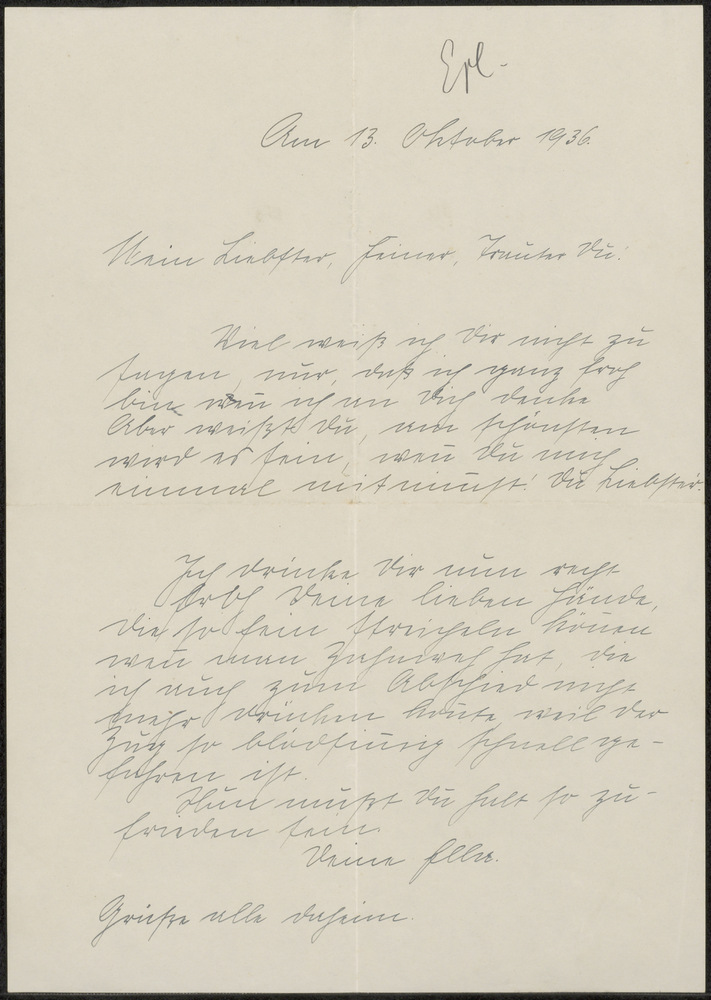 Epl.
Am 13. Oktober 1936.
Mein Liebster, Feiner, Trauter Du!
Viel weiß ich Dir nicht zu
sagen, nur, daß ich ganz froh
bin wen̅ ich an Dich denke
Aber weißt Du, am schönsten
wird es sein, wen̅ Du mich
einmal mitnim̅st! Du Liebster.
Ich drücke Dir nun recht
froh Deine lieben Hände,
die so fein streicheln kön̅en
wen̅ man Zahnweh hat, die
ich auch zum Abschied nicht
mehr drücken kon̅te weil der
Zug so blödsin̅ig schnell ge-
fahren ist.
Nun mußt Du halt so zu-
frieden sein.
Deine Ella.
Grüße alle daheim.